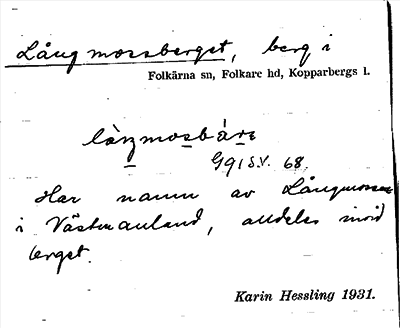 Långmossberget, berg i
Folkärna sn, Folkare hd, Kopparbergs l.
G91 S.V. 68.
Har namn av Långmossen
i Västmanland, alldeles invid
berget.
Karin Hessling 1931.